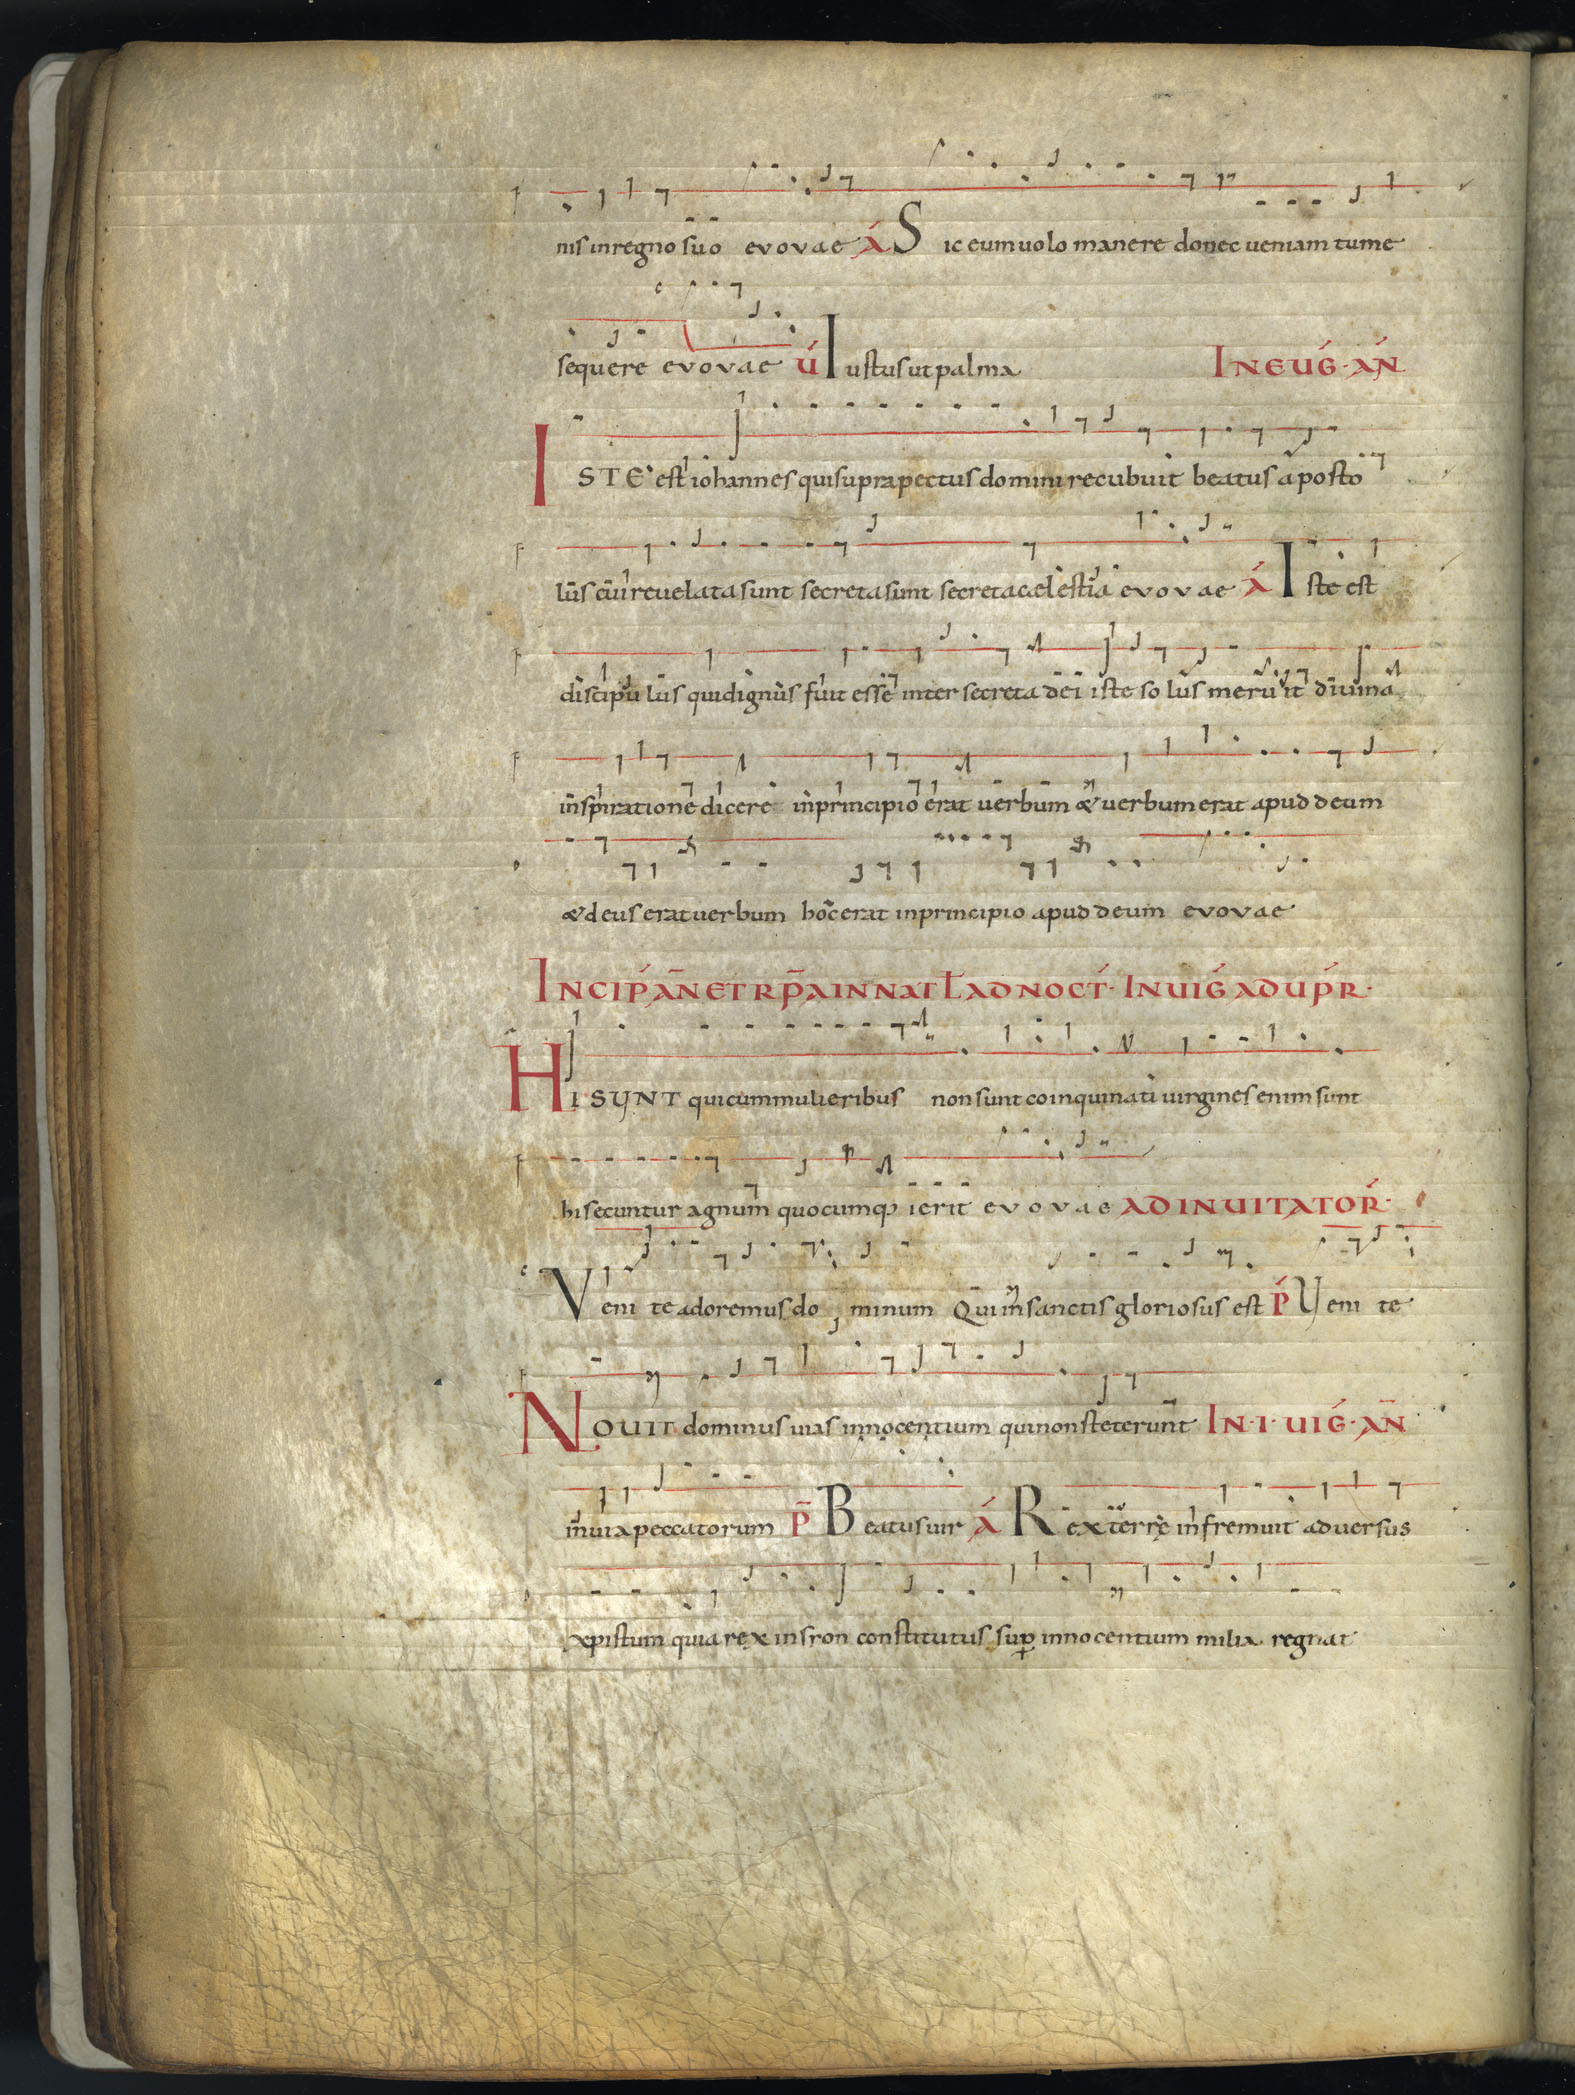 nis inregno suo evovae A S ic eum uolo manere donec ueniam tu me
sequere evovae V Iustus ut palma IN EUG. AN
ISTE est iohannes qui supra pectus domini recubuit beatus aposto
lus cui reuelata sunt secreta sunt secreta caelestia evovae A Iste est
discipulus qui dignus fuit esse inter secreta dei iste solus meruit diuina
inspiratione dicere in principio erat uerbum & uerbum erat apud deum
& deus erat uerbum hoc erat in principio apud deum evovae
INCIP AN ET RP A IN NAT L AD NOCT. IN UIG AD UPR.
HI SUNT qui cum mulieribus non sunt coinquinati uirgines enim sunt
hi secuntur agnum quocumq ierit evovae AD INUITATOR.
Veni te adoremus do minum Qui in sanctis gloriosus est P Veni te
NOUIT dominus uias innocentium qui non steterunt IN .I. UIG. AN
in uia peccatorum P Beatus uir A Rex terrę infremuit aduersus
xpistum quia rex in sion constitutus sup innocentium milia regnat